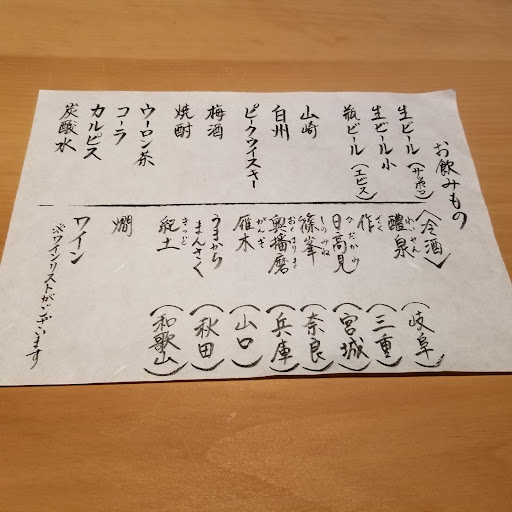 お飲みもの
生ビール（サッポロ）
生ビール小
瓶ビール（エビス）
山崎
白州
ピークウイスキー
梅酒
焼酎
ウーロン茶
コーラ
カルピス
炭酸水
〈冷酒〉
醴泉 れいせん（岐阜）
作 ざく（三重）
日高見 ひたかみ（宮城）
篠峯 しのみね（奈良）
奥播磨 おくはりま（兵庫）
雁木 がんぎ（山口）
うまからまんさく（秋田）
紀土 きっど（和歌山）
燗
ワイン
※ワインリストがございます